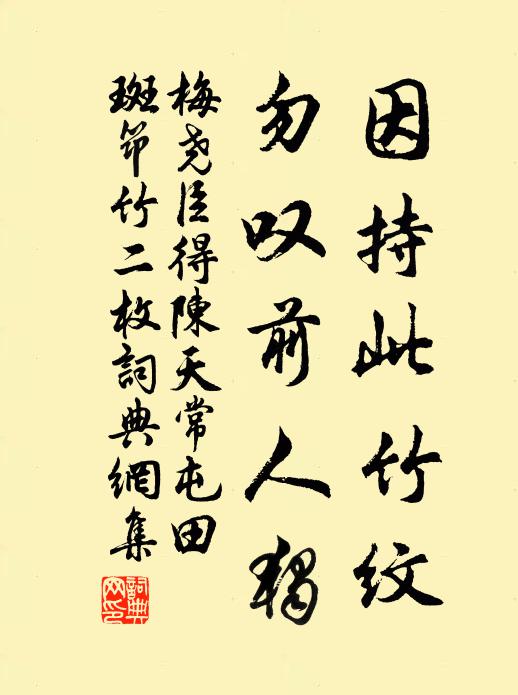 因持此竹纹
勿叹前人獨
梅尧臣得陳天常屯田
斑笻竹二枚詞典網集
詞典网印